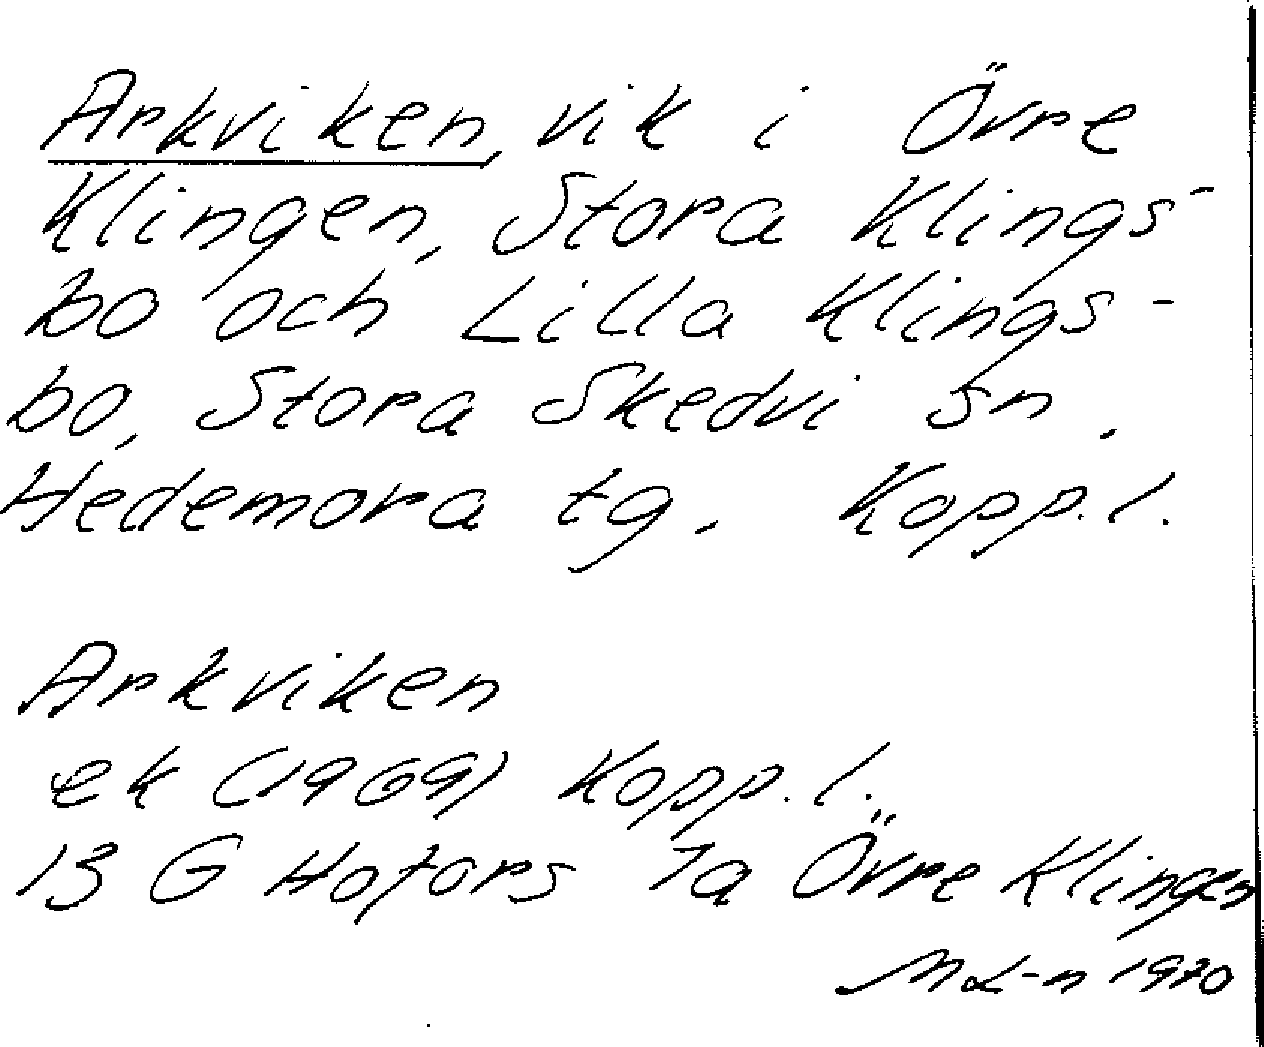 Arkviken, vik i Övre
Klingen, Stora Klings-
bo och Lilla Klings-
bo, Stora Skedvi sn,
Hedemora tg. Kopp. l.
Arkviken
ek (1969) Kopp. l.
13 G Hofors 7a Övre Klingen
M L-n 1970